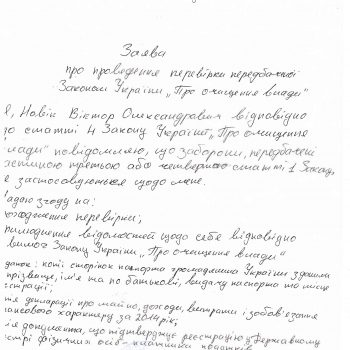 Заява
про проведення перевірки, передбаченої
Законом України „Про очищення влади"
Я, Новік Віктор Олександрович відповідно
до статті 4 Закону України „Про очищення
влади" повідомляю, що заборони, передбачені
частиною третьою або четвертою статті 1 Закону,
не застосовуються щодо мене.
Надаю згоду на:
проходження перевірки;
оприлюднення відомостей щодо себе відповідно
вимог Закону України „Про очищення влади"
Додаток: копії сторінок паспорта громадянина України з даними
прізвище, ім'я та по батькові, видачу паспорта та місце
реєстрації;
декларації про майно, доходи, витрати і зобов'язання
фінансового характеру за 2014 рік;
документа, що підтверджує реєстрацію у Державному
реєстрі фізичних осіб - платників податків